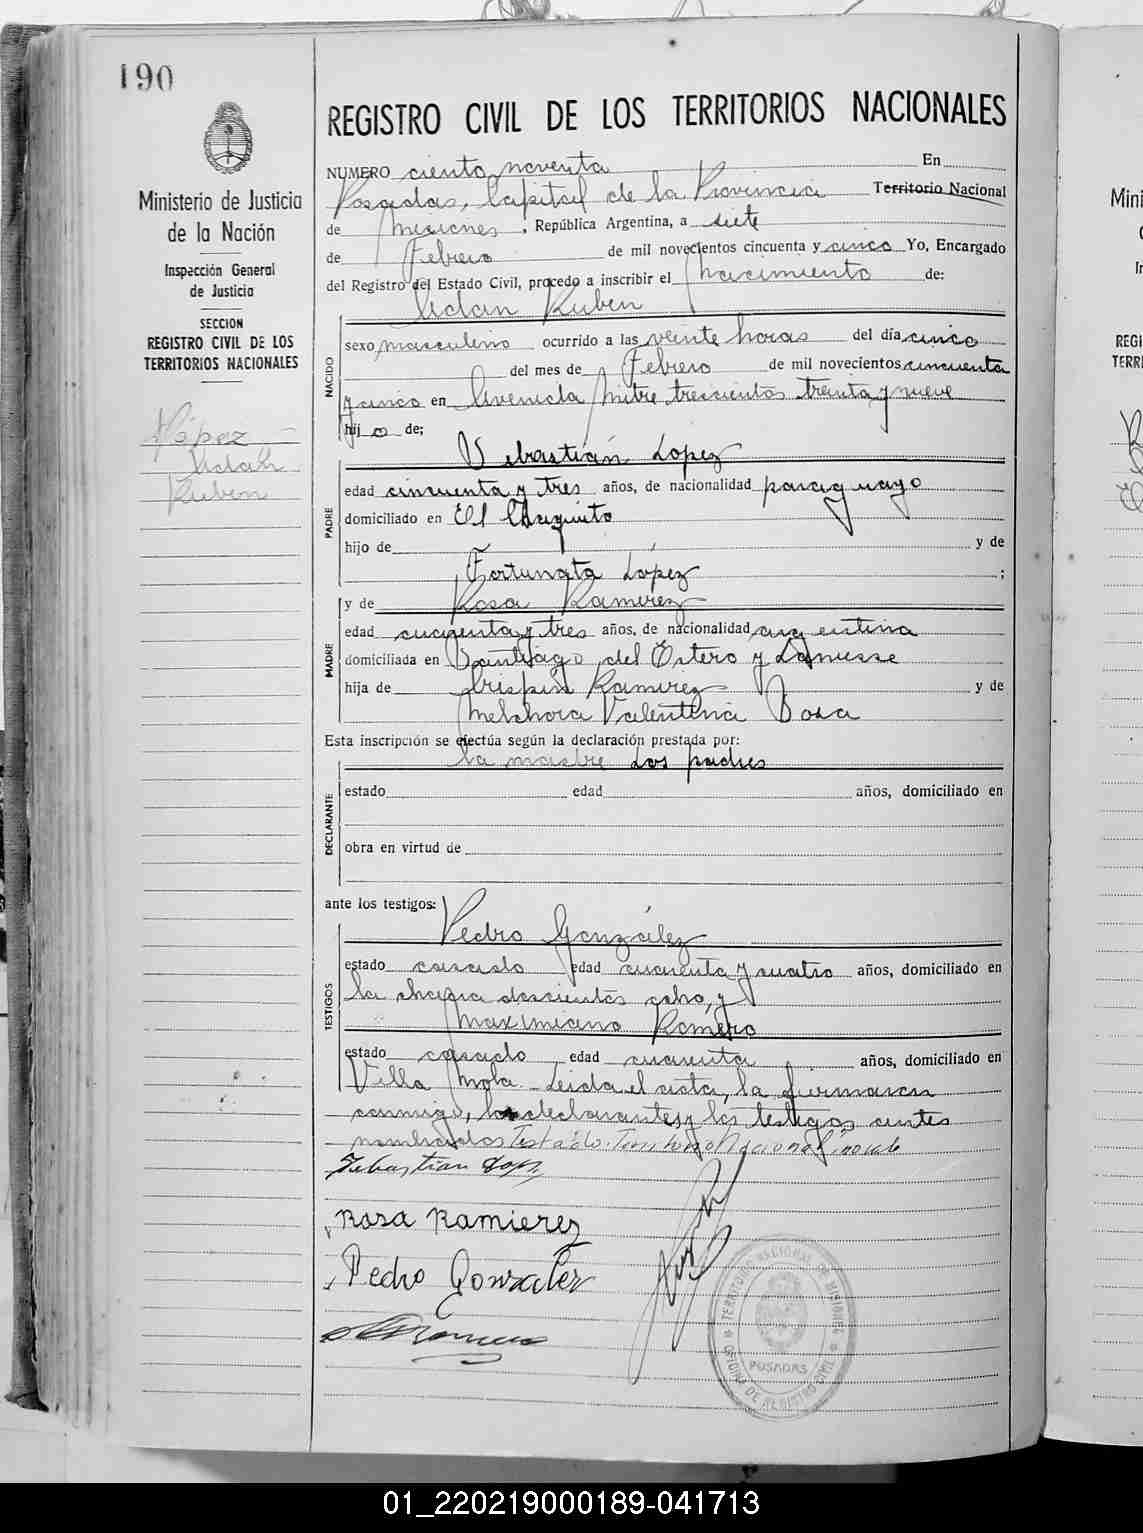 190
Ministerio de Justicia
de la Nación
Inspección General
de Justicia
SECCION
REGISTRO CIVIL DE LOS
TERRITORIOS NACIONALES
López
Adan
Ruben
REGISTRO CIVIL DE LOS TERRITORIOS NACIONALES
NUMERO ciento noventa En
Posadas, Capital de la Provincia Territorio Nacional
de Misiones, República Argentina, a siete
de Febrero de mil novecientos cincuenta y cinco Yo, Encargado
del Registro del Estado Civil, procedo a inscribir el nacimiento de:
Adan Ruben
NACIDO
sexo masculino ocurrido a las veinte horas del día cinco
del mes de Febrero de mil novecientos cincuenta
y cinco en Avenida Mitre trescientos treinta y nueve
hijo de;
Sebastián Lopez
PADRE
edad cincuenta y tres años, de nacionalidad paraguayo
domiciliado en El Chaquito
hijo de y de
Fortunata López ;
y de Rosa Ramirez
MADRE
edad cuarenta y tres años, de nacionalidad argentina
domiciliada en Santiago del Estero y Lanusse
hija de Crispin Ramirez y de
Melchora Valentina Sosa
Esta inscripción se efectúa según la declaración prestada por:
la madre los padres
DECLARANTE
estado edad años, domiciliado en
obra en virtud de
ante los testigos:
Pedro González
TESTIGOS
estado casado edad cuarenta y cuatro años, domiciliado en
la chacra doscientos ocho, y
Maximiano Romero
estado casado edad cuarenta años, domiciliado en
Villa Mola. Leida el acta, la firmaron
conmigo, los declarantes y los testigos antes
nombrados Testado: Territorio Nacional: no vale
Sebastian Lopz
Rosa Ramierez
Pedro Gonzalez
Romero
TERRITORIO NACIONAL DE MISIONES
POSADAS
OFICINA DE REGISTRO CIVIL
Mini
REGI
TERR
01_220219000189-041713